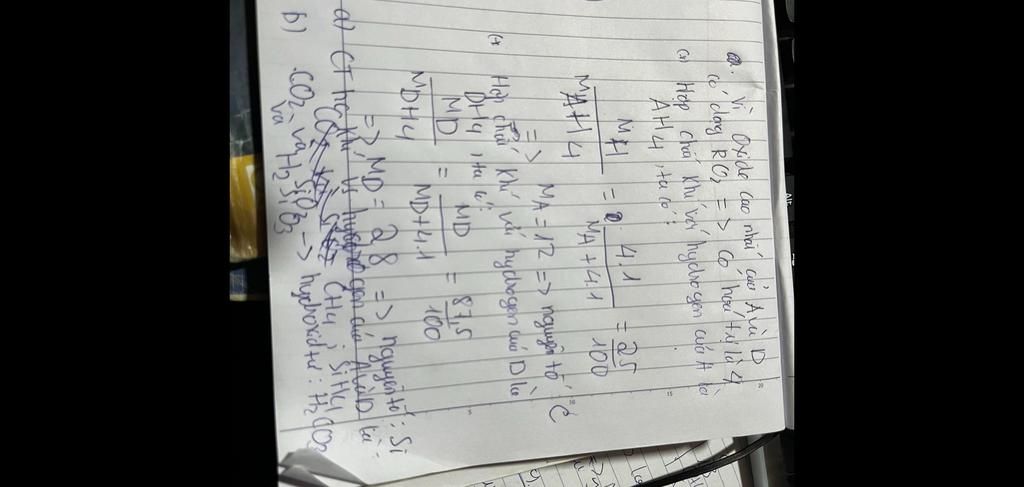 Vì Oxide cao nhất của A và D
có dạng RO2 => có hoá trị là 4
(+) Hợp chất khí với hydrogen của A là
AH4, ta có:
MH / MAH4 = 4.1 / MA + 4.1 = 25 / 100
=> MA = 12 => nguyên tố C
(+) Hợp chất khí với hydrogen của D là
DH4, ta có:
MD / MDH4 = MD / MD + 4.1 = 87,5 / 100
=> MD = 28 => nguyên tố: Si
a) CT h/c khí với hydrogen của A và D là:
CH4; SiH4
b) CO2 và SiO2 -> hydroxide t/ư: H2CO3
và H2SiO3